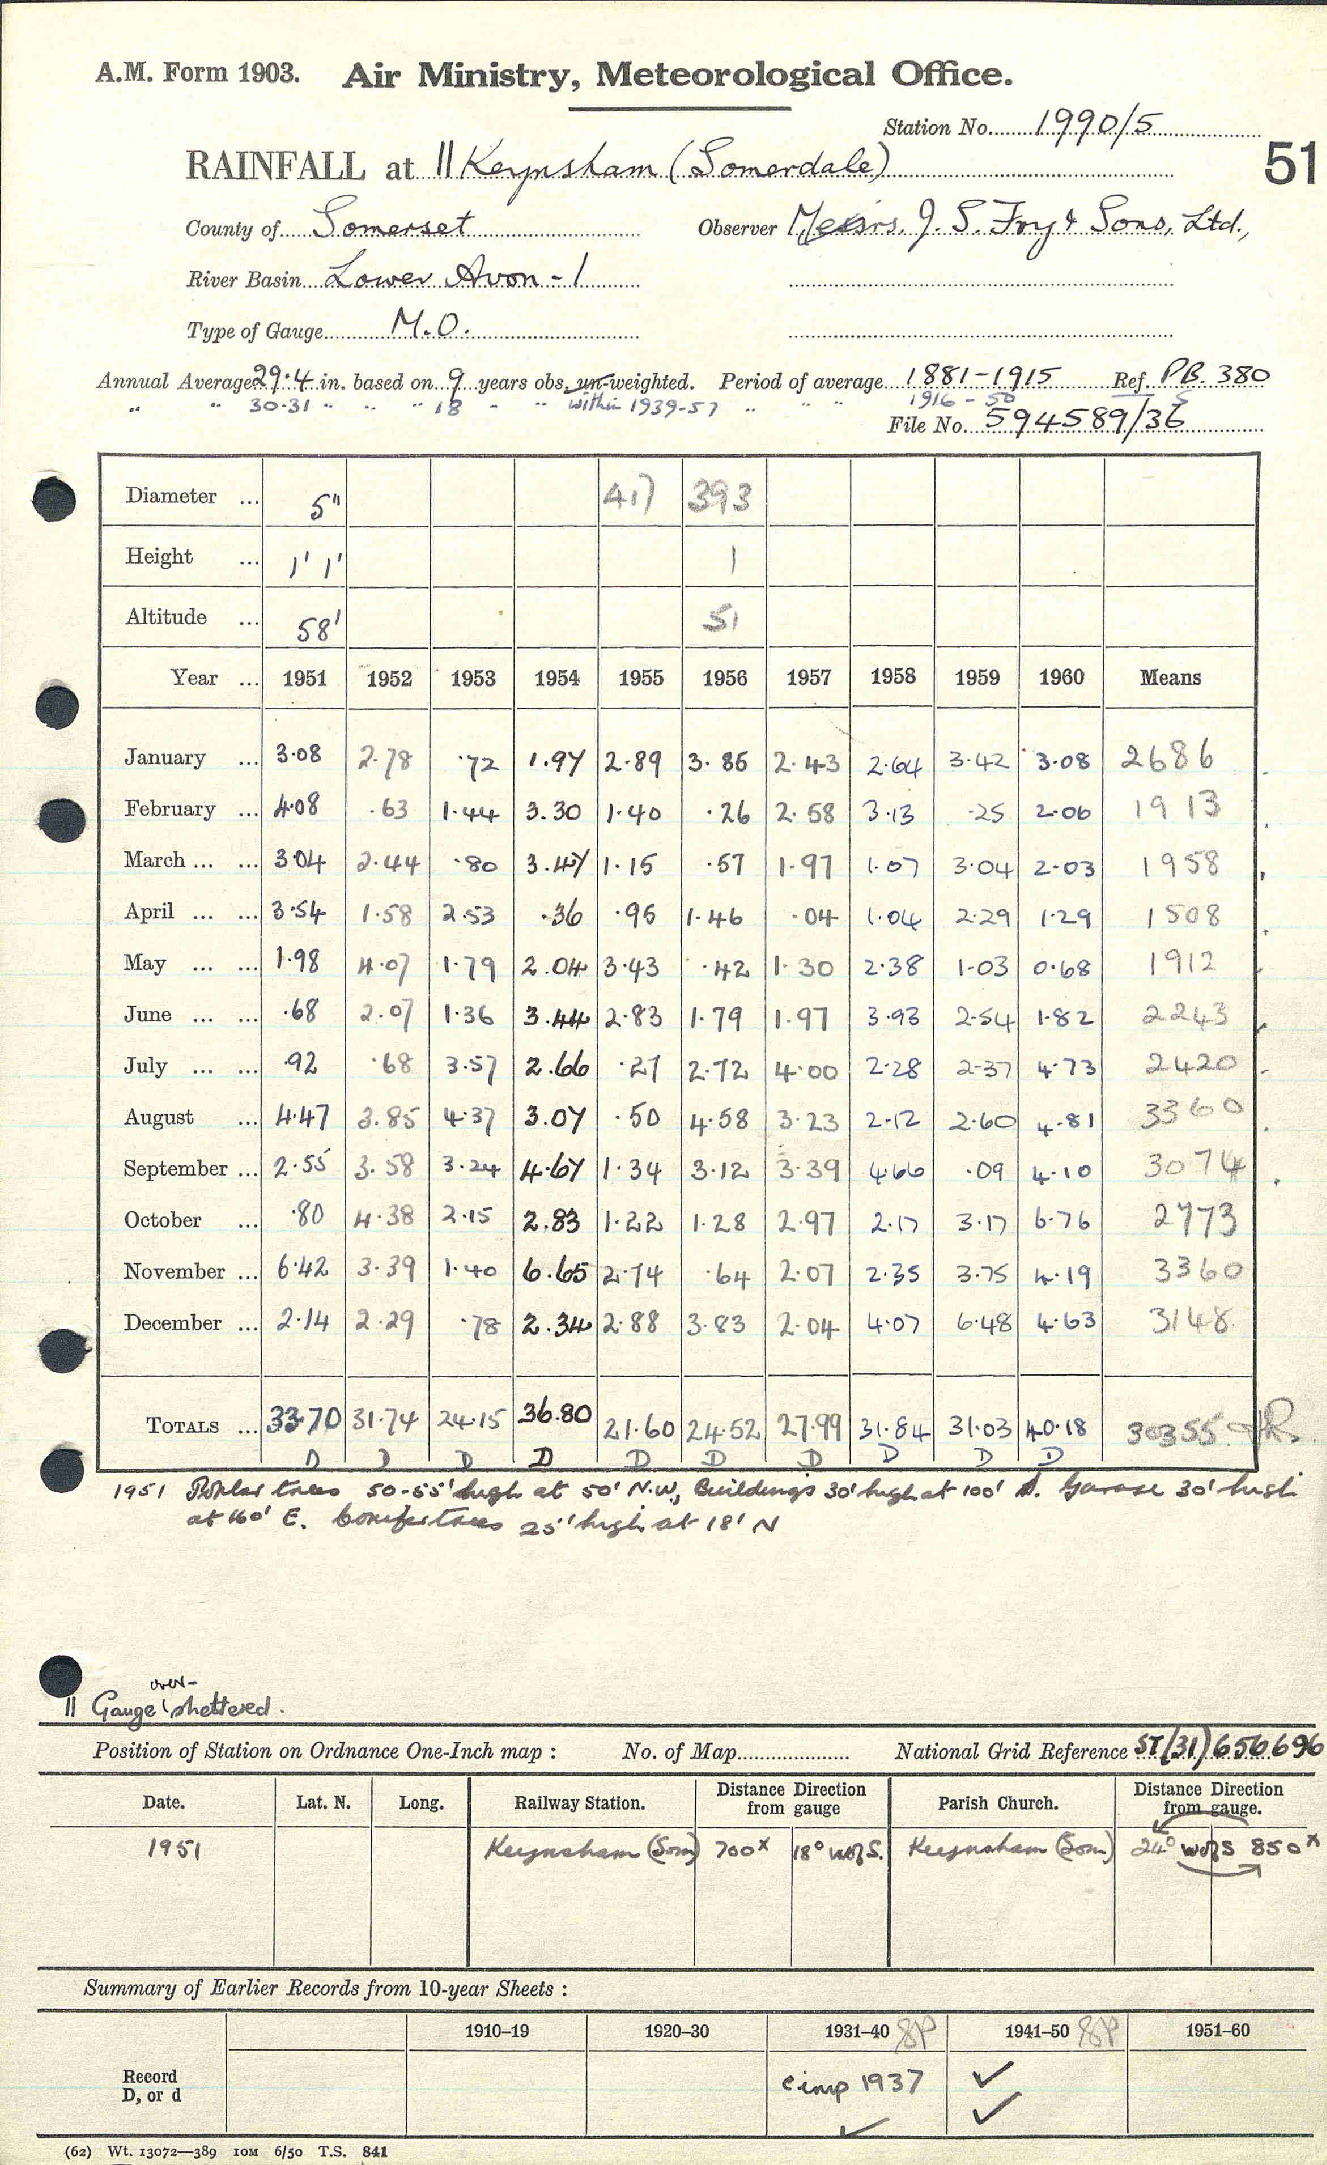 A.M. Form 1903. Air Ministry, Meteorological Office.
Station No. 1990/5
51
RAINFALL at || Keynsham (Somerdale)
County of Somerset Observer Messrs. J. S. Fry & Sons, Ltd.,
River Basin Lower Avon - 1
Type of Gauge M.O.
Annual Average 29.4 in. based on 9 years obs. un-weighted. Period of average 1881-1915 Ref. PB. 380
" " 30.31 " " " 18 " " within 1939-57 " " " 1916-50 5
File No. 594589/36
Diameter ... 5" 417 393
Height ... 1' 1" 1
Altitude ... 58' 51
Year ... 1951 1952 1953 1954 1955 1956 1957 1958 1959 1960 Means
January ... 3.08 2.78 .72 1.97 2.89 3.85 2.43 2.64 3.42 3.08 2686
February ... 4.08 .63 1.44 3.30 1.40 .26 2.58 3.13 .25 2.06 1913
March ... ... 3.04 2.44 .80 3.47 1.15 .57 1.97 1.07 3.04 2.03 1958
April ... ... 3.54 1.58 2.53 .36 .95 1.46 .04 1.04 2.29 1.29 1508
May ... ... 1.98 4.07 1.79 2.04 3.43 .42 1.30 2.38 1.03 0.68 1912
June ... ... .68 2.07 1.36 3.44 2.83 1.79 1.97 3.93 2.54 1.82 2243
July ... ... .92 .68 3.57 2.66 .27 2.72 4.00 2.28 2.37 4.73 2420
August ... 4.47 3.85 4.37 3.07 .50 4.58 3.23 2.12 2.60 4.81 3360
September ... 2.55 3.58 3.24 4.67 1.34 3.12 3.39 4.66 .09 4.10 3074
October ... .80 4.38 2.15 2.83 1.22 1.28 2.97 2.17 3.17 6.76 2773
November ... 6.42 3.39 1.40 6.65 2.74 .64 2.07 2.35 3.75 4.19 3360
December ... 2.14 2.29 .78 2.34 2.88 3.83 2.04 4.07 6.48 4.63 3148
TOTALS ... 33.70 31.74 24.15 36.80 21.60 24.52 27.99 31.84 31.03 40.18 30355
D D D D D D D D D D
1951 Poplar trees 50-55' high at 50' N.W., Buildings 30' high at 100' S. Garage 30' high
at 160' E. Conifer trees 25' high at 18' N
over-
|| Gauge sheltered.
Position of Station on Ordnance One-Inch map : No. of Map National Grid Reference ST(31) 656 696
Date. Lat. N. Long. Railway Station. Distance Direction from gauge Parish Church. Distance Direction from gauge.
1951 Keynsham (Som) 700x 18° W of S. Keynsham (Som) 24° W of S 850x
Summary of Earlier Records from 10-year Sheets :
1910–19 1920–30 1931–40 SP 1941–50 SP 1951–60
Record
D, or d
cimp 1937 ✓
✓ ✓
(62) Wt. 13072—389 10M 6/50 T.S. 841